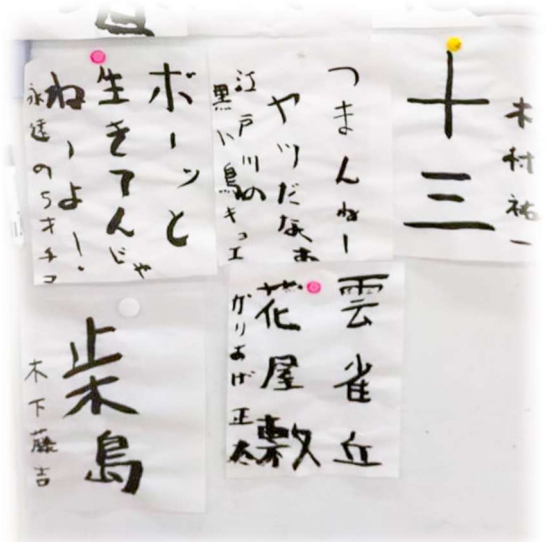 木村祐一
十三
つまんねー
ヤツだなぁ
江戸川の
黒い鳥キョエ
ボーッと
生きてんじゃ
ねーよー!
永遠の5才チコ
雲雀丘
花屋敷
かりあげ正太
柴島
木下藤吉